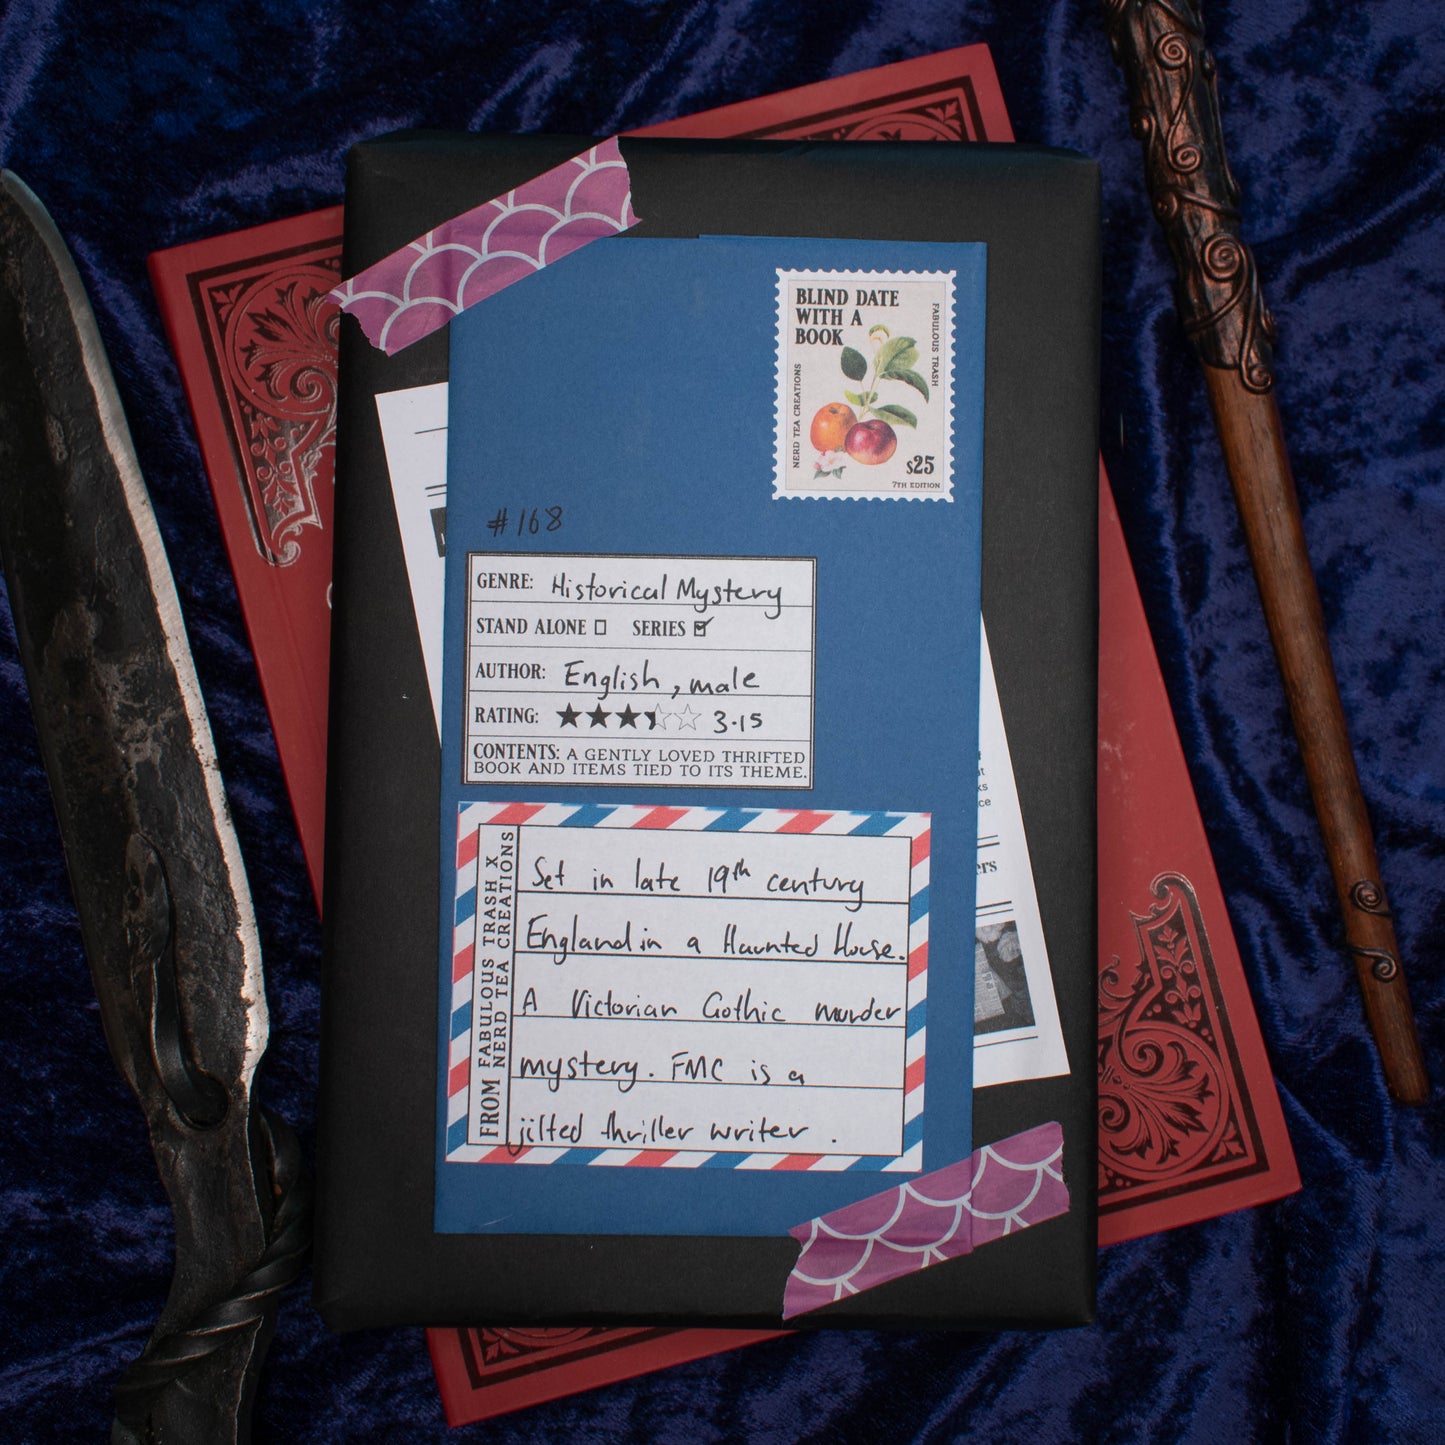 BLIND DATE
WITH A
BOOK
FABULOUS TRASH
NERD TEA CREATIONS
$25
7TH EDITION
#168
GENRE: Historical Mystery
STAND ALONE ☐ SERIES ☑
AUTHOR: English, male
RATING: ★★★☆☆ 3.15
CONTENTS: A GENTLY LOVED THRIFTED
BOOK AND ITEMS TIED TO ITS THEME.
FROM FABULOUS TRASH X
NERD TEA CREATIONS
Set in late 19th century
England in a Haunted House.
A Victorian Gothic murder
mystery. FMC is a
jilted thriller writer.